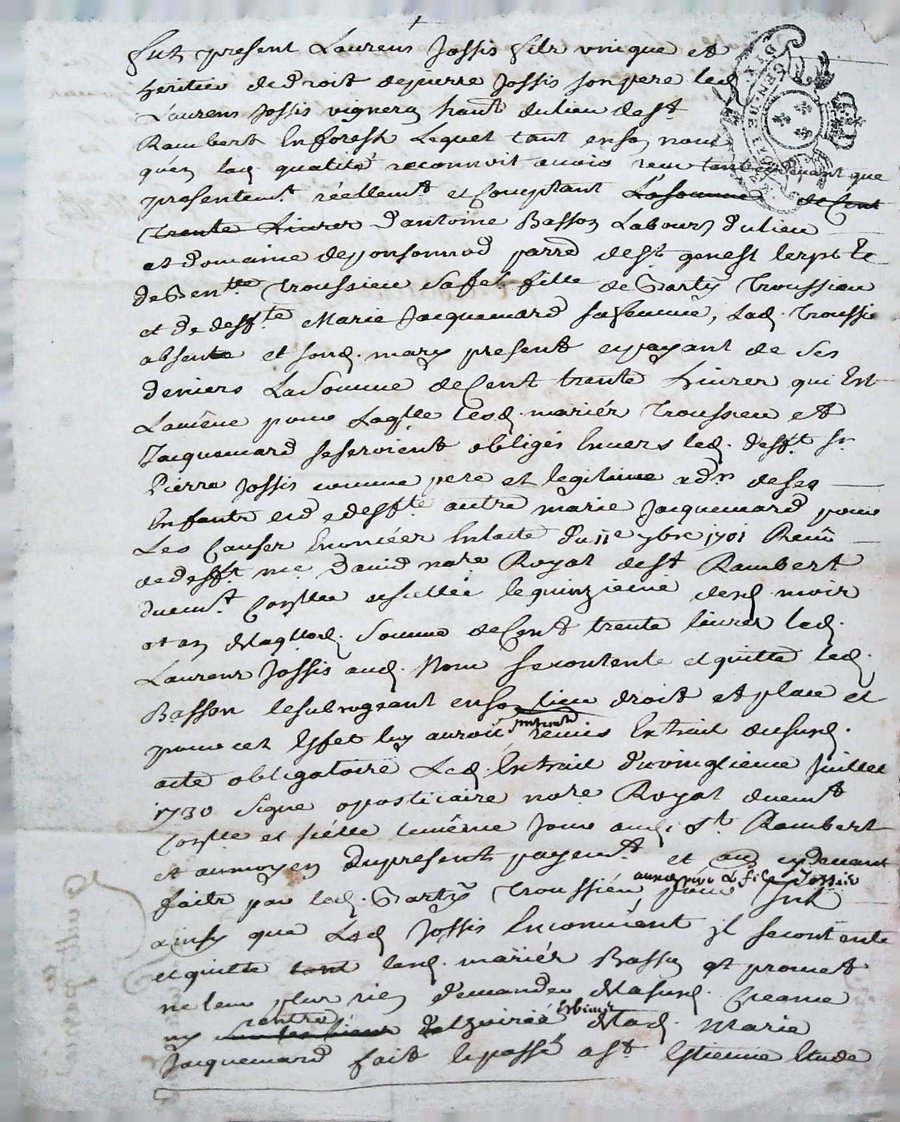 fut present Laurens Jossis fils unique et
heritier de droit de pierre Jossis son pere led
Laurens Jossis vigneron hant du lieu de st
Rambert En forest Lequel tant en son nom
qu'en lad qualité reconnoit avoir reçu tant devant que
presentemt réellemt et Comptant La somme de Cent
trente Livres d'antoine Basson Labourr du lieu
et domaine de ponsonnod parre de st genest lerpt
de Troussieu sa fe fille de Troussieu
et de deffte Marie Jacquemard sa femme, Lad. Troussieu
absente et sond. mary present et payant de ses
deniers La Somme de Cent trente Livres qui Est
La même pour Laqlle lesd. mariés Troussieu et
Jacquemard se seroient obligés Envers led. defft sr
Pierre Jossis comme pere et legitime adr de ses
Enfants et de deffte autre marie Jacquemard pour
Les Causes Enoncées En l'acte du 11e 9bre 1701 Reçu
de defft me David nore Royal de st Rambert
duemt Conllé et scellé le quinzieme desd mois
et an de laqlled. Somme de Cent trente livres led.
Laurens Jossis aud. Nom se contente et quitte led.
Basson le subrogeant en son lieu droit et place et
pour cet Effet luy auroit remis Extrait dususd.
acte obligatoire Led. Extrait du vingtieme Juillet
1730 Signé apoticaire nore Royal duemt
Conllé et scellé le même Jour aud st Rambert
et au moyen du present payemt et au cydevant
faits par led. Troussieu fils Jossis
ainsy que Led Jossis En convient Jl se contente
et quitte tant lesd. mariés Basson et promet
ne leur plus rien demander de la susd. Creance
ny contre de lad. Marie
Jacquemard fait et passé a st Estienne Etude